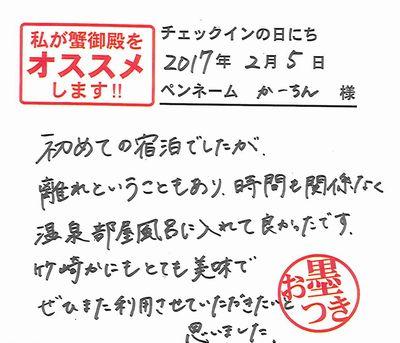 私が蟹御殿を
オススメ
します!!
チェックインの日にち
2017年 2月 5日
ペンネーム かーちん 様
初めての宿泊でしたが、
離れということもあり、時間も関係なく
温泉部屋風呂に入れて良かったです。
竹崎かにもとても美味で
ぜひまた利用させていただきたいと
思いました。
お墨つき